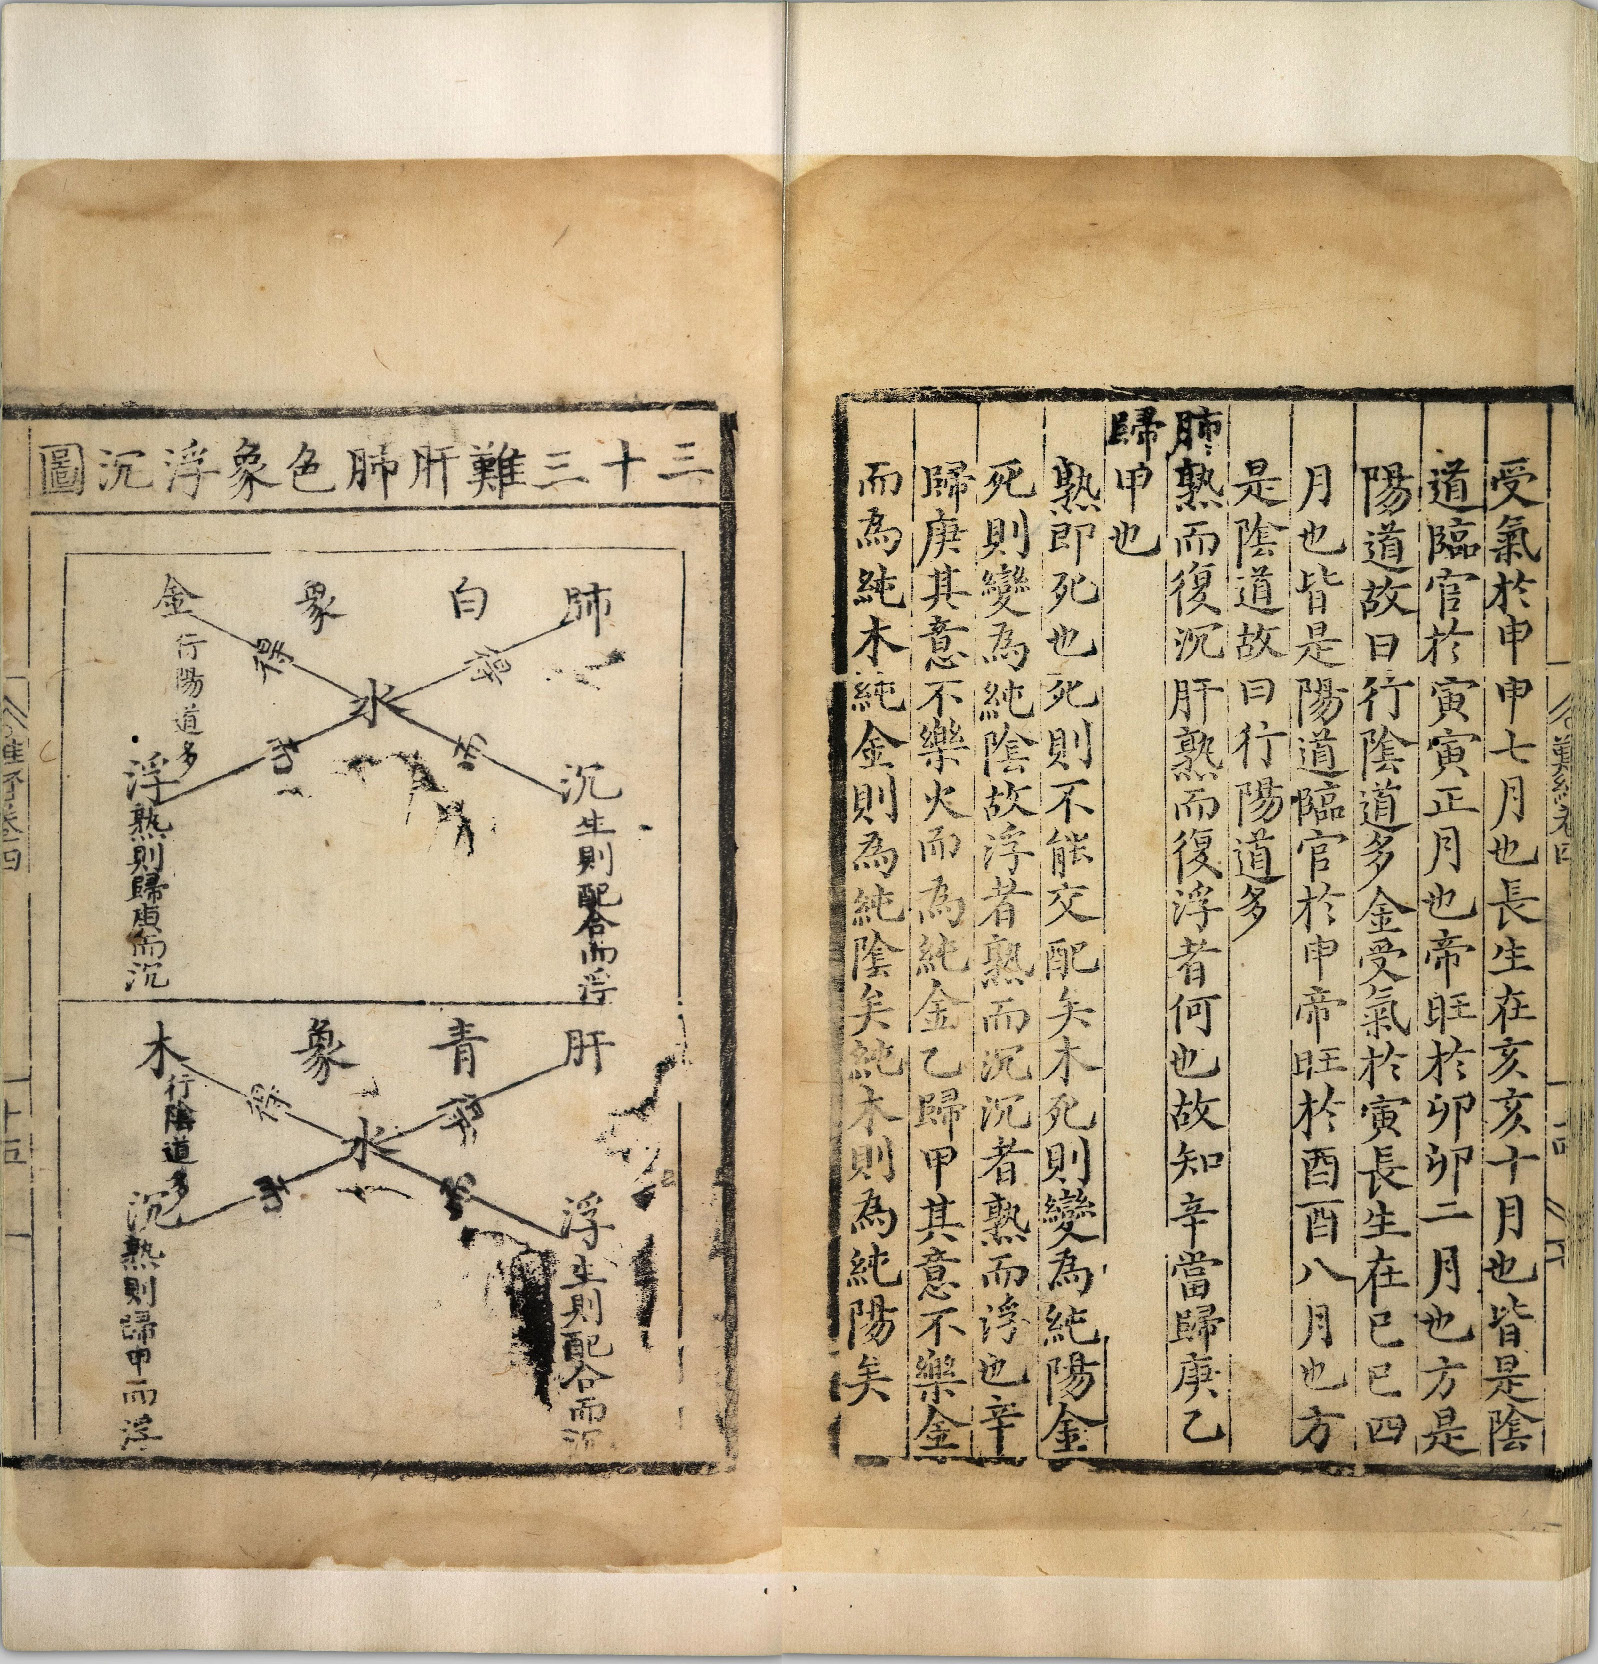 受氣於申申七月也長生在亥亥十月也皆是陰
道臨官於寅寅正月也帝旺於卯卯二月也方是
陽道故曰行陰道多金受氣於寅長生在巳巳四
月也皆是陽道臨官於申帝旺於酉酉八月也方
是陰道故曰行陽道多
肺熟而復沉肝熟而復浮者何也故知辛當歸庚乙
歸甲也
熟即死也死則不能交配矣木死則變為純陽金
死則變為純陰故浮者熟而沉沉者熟而浮也辛
歸庚其意不樂火而為純金乙歸甲其意不樂金
而為純木純金則為純陰矣純木則為純陽矣
三十三難肝肺色象浮沉圖
肺
白
象
金
得
得
行陽道多
水
沉
生則配合而浮
浮
熟則歸庚而沉
肝
青
象
木
得
得
行陰道多
水
浮
生則配合而沉
沉
熟則歸甲而浮